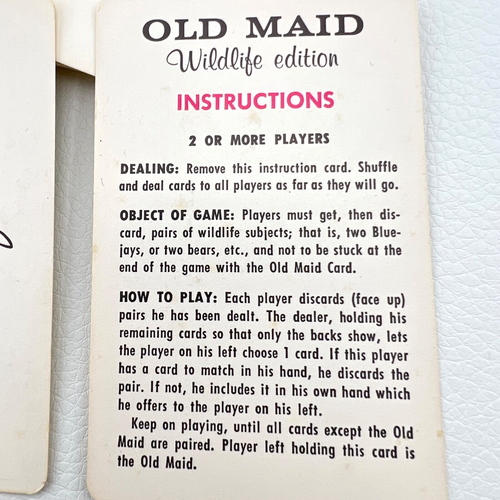 OLD MAID
Wildlife edition
INSTRUCTIONS
2 OR MORE PLAYERS
DEALING: Remove this instruction card. Shuffle
and deal cards to all players as far as they will go.
OBJECT OF GAME: Players must get, then dis-
card, pairs of wildlife subjects; that is, two Blue-
jays, or two bears, etc., and not to be stuck at the
end of the game with the Old Maid Card.
HOW TO PLAY: Each player discards (face up)
pairs he has been dealt. The dealer, holding his
remaining cards so that only the backs show, lets
the player on his left choose 1 card. If this player
has a card to match in his hand, he discards the
pair. If not, he includes it in his own hand which
he offers to the player on his left.
Keep on playing, until all cards except the Old
Maid are paired. Player left holding this card is
the Old Maid.